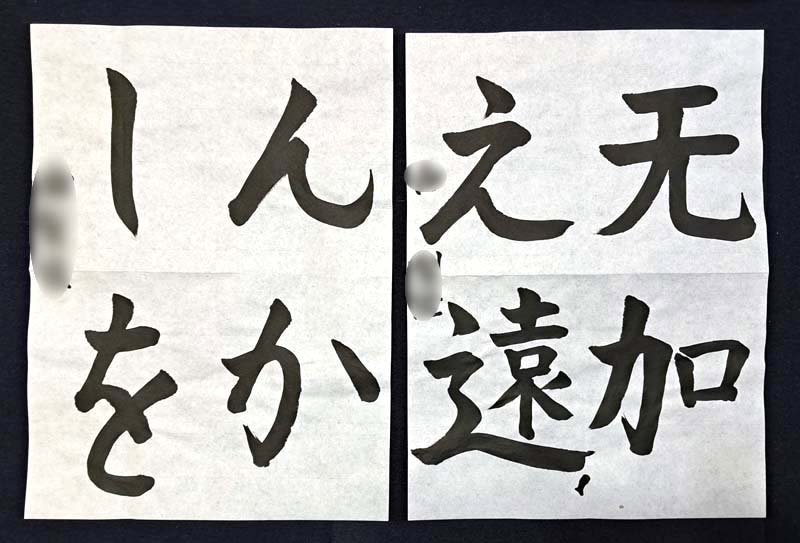 无加
之遠
んか
しを